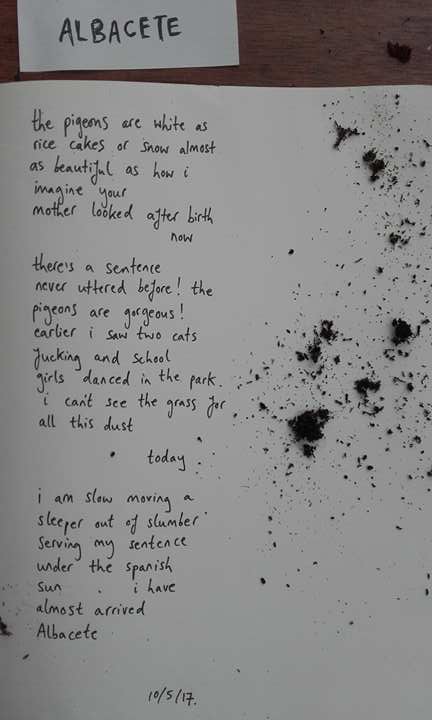 ALBACETE
the pigeons are white as
rice cakes or snow almost
as beautiful as how i
imagine your
mother looked after birth
now
there's a sentence
never uttered before! the
pigeons are gorgeous!
earlier i saw two cats
fucking and school
girls danced in the park.
i can't see the grass for
all this dust
today
i am slow moving a
sleeper out of slumber
serving my sentence
under the spanish
sun . i have
almost arrived
Albacete
10/5/17.